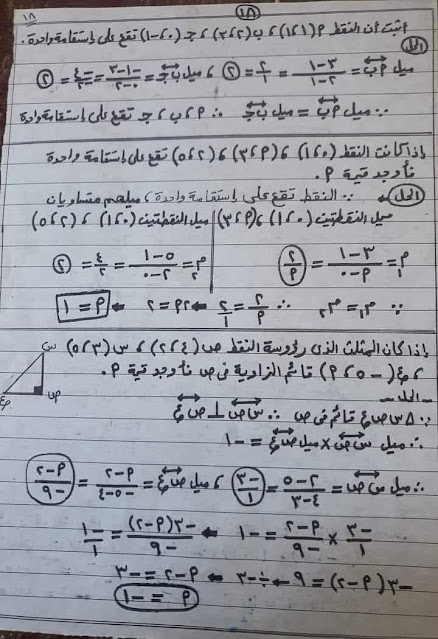 ١٨
١٨
أثبت أن النقط P(١،١)، ب(٢،٣)، جـ(٠،-١) تقع على إستقامة واحدة.
الحل
ميل Pب = ٣-١ / ٢-١ = ٢/١ = ٢ ، ميل ب جـ = -١-٣ / ٠-٢ = -٤/-٢ = ٢
∵ ميل Pب = ميل ب جـ ∴ P، ب، جـ تقع على إستقامة واحدة
إذا كانت النقط (٠،١)، (P،٣)، (٢،٥) تقع على إستقامة واحدة
فأوجد قيمة P.
الحل ∵ النقط تقع على إستقامة واحدة، ميلهم متساويان
ميل النقطتين (٠،١)، (P،٣) | ميل النقطتين (٠،١)، (٢،٥)
م١ = ٣-١ / P-٠ = ٢/P م٢ = ٥-١ / ٢-٠ = ٤/٢ = ٢
∵ م١ = م٢ ∴ ٢/P = ٢/١ ← ٢P = ٢ ← P = ١
إذا كان المثلث الذى رؤوسة النقط ص(٤،٢)، س(٣،٥)
، ع(-٥،P) قائم الزاوية فى ص فأوجد قيمة P.
س
ص
ع
-الحل-
∵ △ س ص ع قائم فى ص ∴ س ص ⊥ ص ع
∴ ميل س ص × ميل ص ع = -١
∴ ميل س ص = ٢-٥ / ٤-٣ = -٣/١ ، ميل ص ع = P-٢ / -٥-٤ = P-٢ / -٩
-٣/١ × P-٢ / -٩ = -١ ← -٣(P-٢) / -٩ = -١/١
-٣(P-٢) = ٩ ← ÷-٣ ← P-٢ = -٣
P = -١